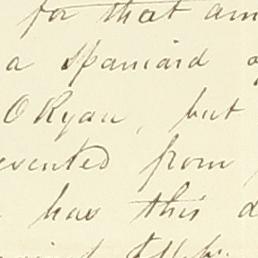 for that am
a spaniard
O Ryan, but
esented from
has this d